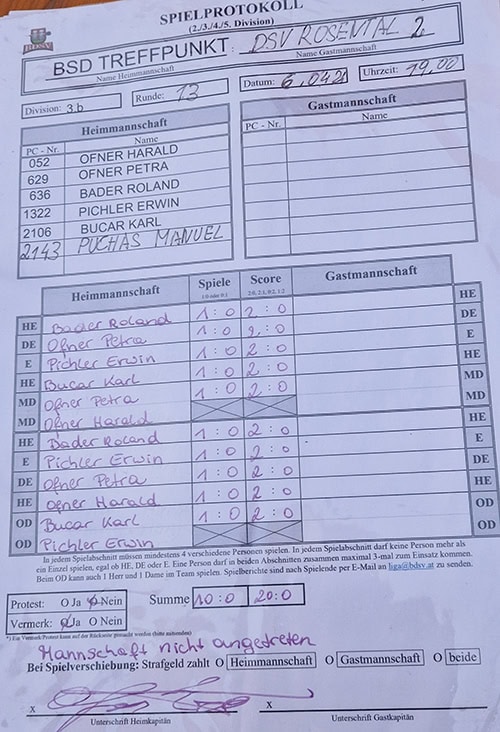 SPIELPROTOKOLL
(2./3./4./5. Division)
BDSV
BSD TREFFPUNKT : DSV ROSENTAL 2
Name Heimmannschaft Name Gastmannschaft
Division: 3.b Runde: 13 Datum: 6.04.24 Uhrzeit: 19,00
Heimmannschaft Gastmannschaft
PC - Nr. Name PC - Nr. Name
052 OFNER HARALD
629 OFNER PETRA
636 BADER ROLAND
1322 PICHLER ERWIN
2106 BUCAR KARL
2143 PUCHAS MANUEL
Heimmannschaft Spiele Score Gastmannschaft
1:0 oder 0:1 2:0, 2:1, 0:2, 1:2
HE Bader Roland 1 : 0 2 : 0 HE
DE Ofner Petra 1 : 0 2 : 0 DE
E Pichler Erwin 1 : 0 2 : 0 E
HE Bucar Karl 1 : 0 2 : 0 HE
MD Ofner Petra 1 : 0 2 : 0 MD
MD Ofner Harald MD
HE Bader Roland 1 : 0 2 : 0 HE
E Pichler Erwin 1 : 0 2 : 0 E
DE Ofner Petra 1 : 0 2 : 0 DE
HE Ofner Harald 1 : 0 2 : 0 HE
OD Bucar Karl 1 : 0 2 : 0 OD
OD Pichler Erwin OD
In jedem Spielabschnitt müssen mindestens 4 verschiedene Personen spielen. In jedem Spielabschnitt darf keine Person mehr als
ein Einzel spielen, egal ob HE, DE oder E. Eine Person darf in beiden Abschnitten zusammen maximal 3-mal zum Einsatz kommen.
Beim OD kann auch 1 Herr und 1 Dame im Team spielen. Spielberichte sind nach Spielende per E-Mail an liga@bdsv.at zu senden.
Protest: O Ja O Nein Summe 10:0 20:0
Vermerk: O Ja O Nein
*) Ein Vermerk/Protest kann auf der Rückseite gemacht werden (bitte ankreuzen)
Mannschaft nicht angetreten
Bei Spielverschiebung: Strafgeld zahlt O Heimmannschaft O Gastmannschaft O beide
x x
Unterschrift Heimkapitän Unterschrift Gastkapitän